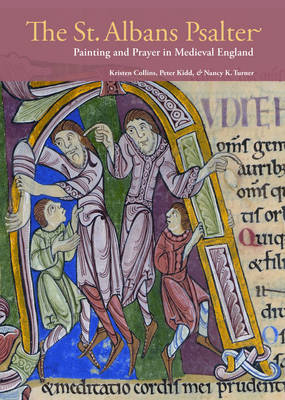 The St. Albans Psalter
Painting and Prayer in Medieval England
Kristen Collins, Peter Kidd, & Nancy K. Turner
om̅s gen
aurib
om̅s q
tis orb
Quiq
& fil
& meditatio cordis mei prudenti